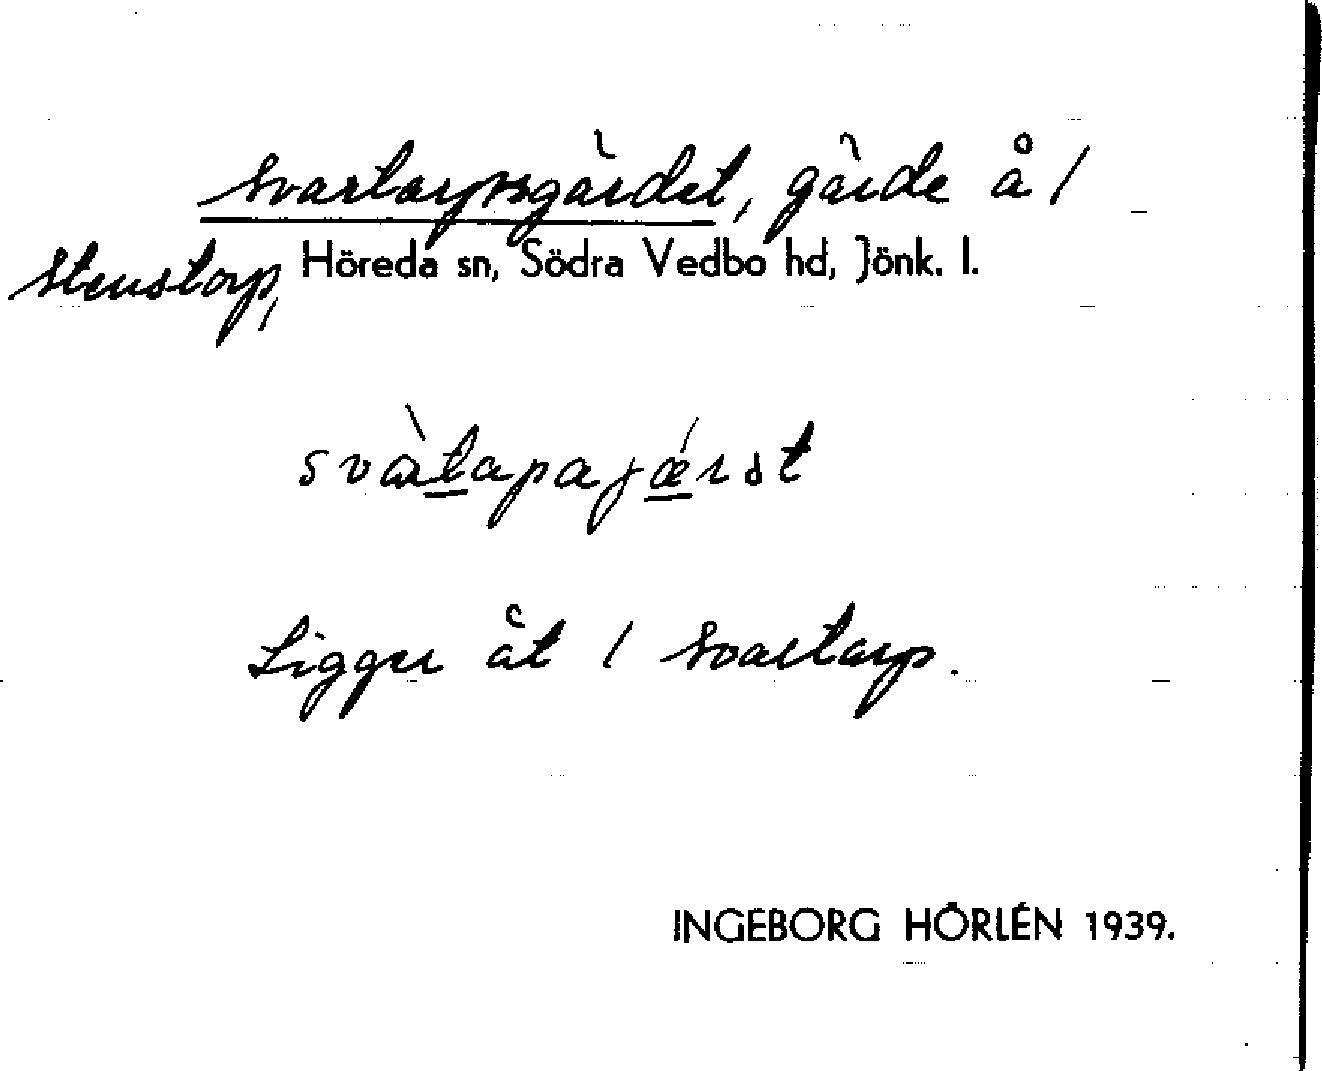 Svartarpsgärdet, gärde å /
Stenstorp, Höreda sn, Södra Vedbo hd, Jönk. l.
svàtapajǽrst
Ligger åt / Svartarp.
INGEBORG HÖRLÉN 1939.